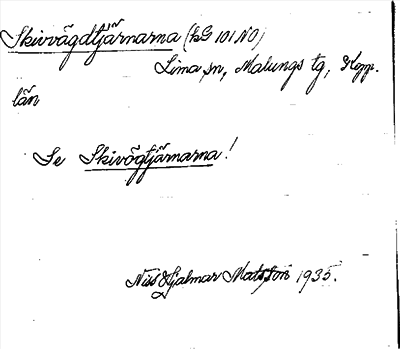 Skivvägdtjärnarna (kG 101 NO)
Lima sn, Malungs tg, Kopp.
län
Se Skivögtjärnarna!
Nils Hjalmar Matsson 1935.